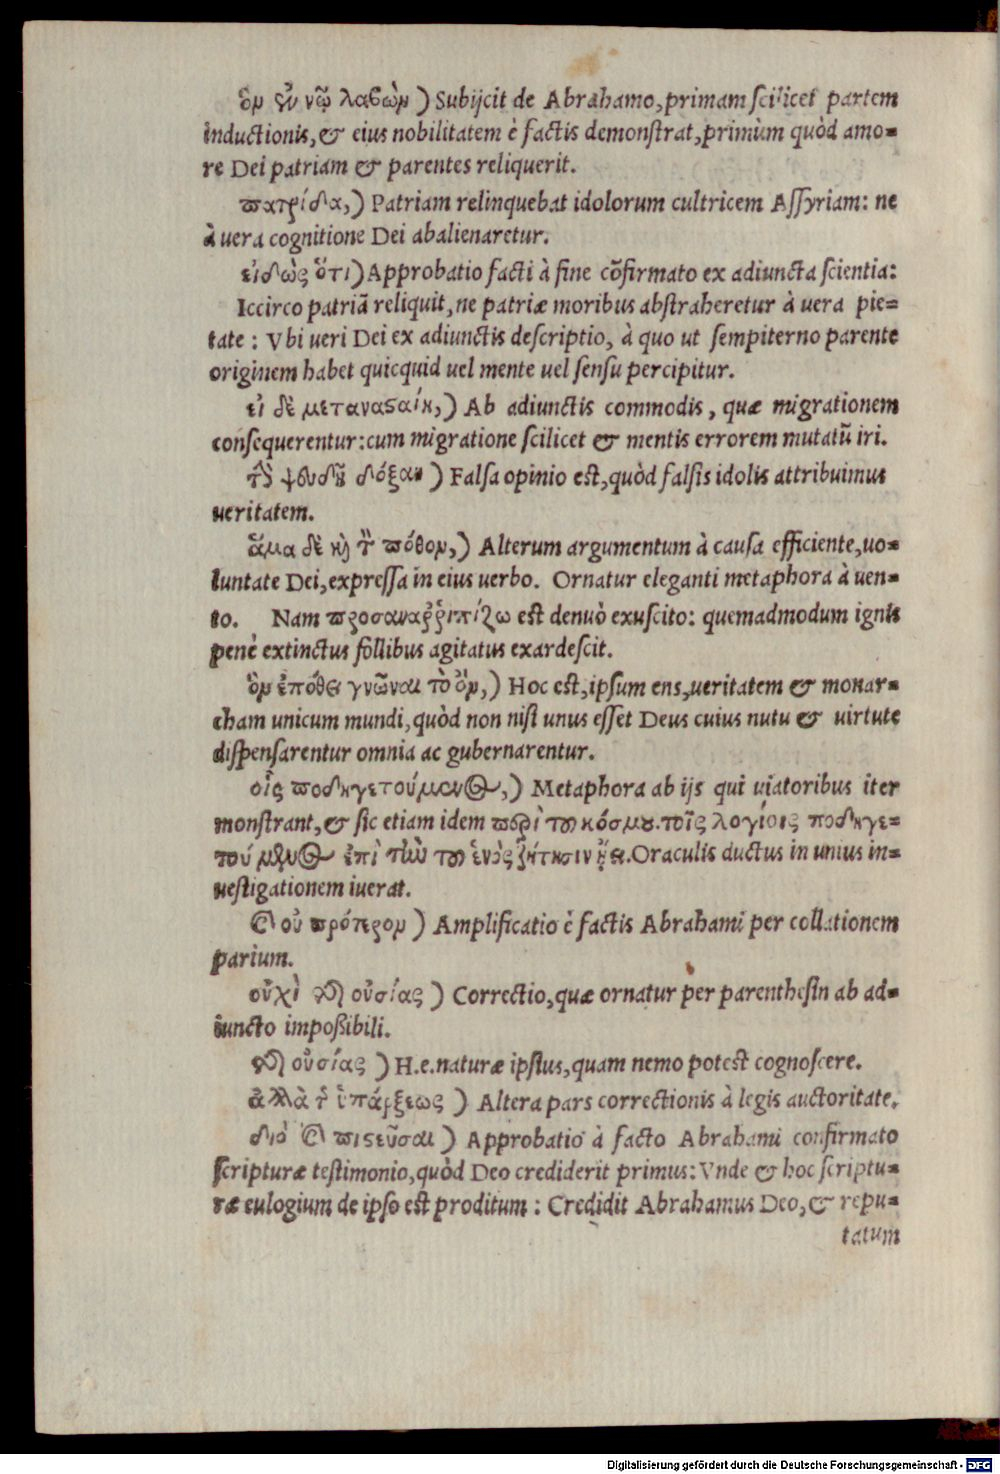 ὃμ ἐν νῷ λαβὼμ ) Subijcit de Abrahamo, primam scilicet partem
inductionis, & eius nobilitatem è factis demonstrat, primùm quòd amo=
re Dei patriam & parentes reliquerit.
πατρίδα, ) Patriam relinquebat idolorum cultricem Aſſyriam: ne
à uera cognitione Dei abalienaretur.
εἰδὼς ὅτι ) Approbatio facti à fine cōfirmato ex adiuncta ſcientia:
Iccirco patriā reliquit, ne patriæ moribus abſtraheretur à uera pie=
tate : Vbi ueri Dei ex adiunctis deſcriptio, à quo ut ſempiterno parente
originem habet quicquid uel mente uel ſenſu percipitur.
εἰ δὲ μεταναϛαίη, ) Ab adiunctis commodis, quæ migrationem
conſequerentur: cum migratione ſcilicet & mentis errorem mutatū iri.
τ ψευδοῦς δόξαμ ) Falſa opinio est, quòd falſis idolis attribuimus
ueritatem.
ἅμα δὲ καὶ τὸν πόθομ, ) Alterum argumentum à cauſa efficiente, uo=
luntate Dei, expreſſa in eius uerbo. Ornatur eleganti metaphora à uen=
to. Nam προσαναῤῥιπίζω est denuò exuſcito: quemadmodum ignis
penè extinctus follibus agitatus exardeſcit.
ὃμ ἐπόθει γνῶναι τὸ ὄμ, ) Hoc est, ipſum ens, ueritatem & monar=
cham unicum mundi, quòd non niſi unus eſſet Deus cuius nutu & uirtute
diſpenſarentur omnia ac gubernarentur.
οἷς ποδηγετούμενος, ) Metaphora ab ijs qui uiatoribus iter
monſtrant, & ſic etiam idem περὶ τοῦ κόσμου. τοῖς λογίοις ποδηγε=
τούμενος ἐπὶ τὴν τοῦ ἑνὸς ζήτησιν ᾔει. Oraculis ductus in unius in=
ueſtigationem iuerat.
καὶ οὐ πρότερομ ) Amplificatio è factis Abrahami per collationem
parium.
οὐχὶ τῆς οὐσίας ) Correctio, quæ ornatur per parentheſin ab ad=
iuncto impoßibili.
τῆς οὐσίας ) H.e. naturæ ipſius, quam nemo potest cognoſcere.
ἀλλὰ τῆς ὑπάρξεως ) Altera pars correctionis à legis auctoritate.
διὸ καὶ πιϛεῦσαι ) Approbatio à facto Abrahami confirmato
ſcripturæ teſtimonio, quòd Deo crediderit primus: Vnde & hoc ſcriptu=
ræ eulogium de ipſo est proditum : Credidit Abrahamus Deo, & repu=
tatum
Digitalisierung gefördert durch die Deutsche Forschungsgemeinschaft - DFG